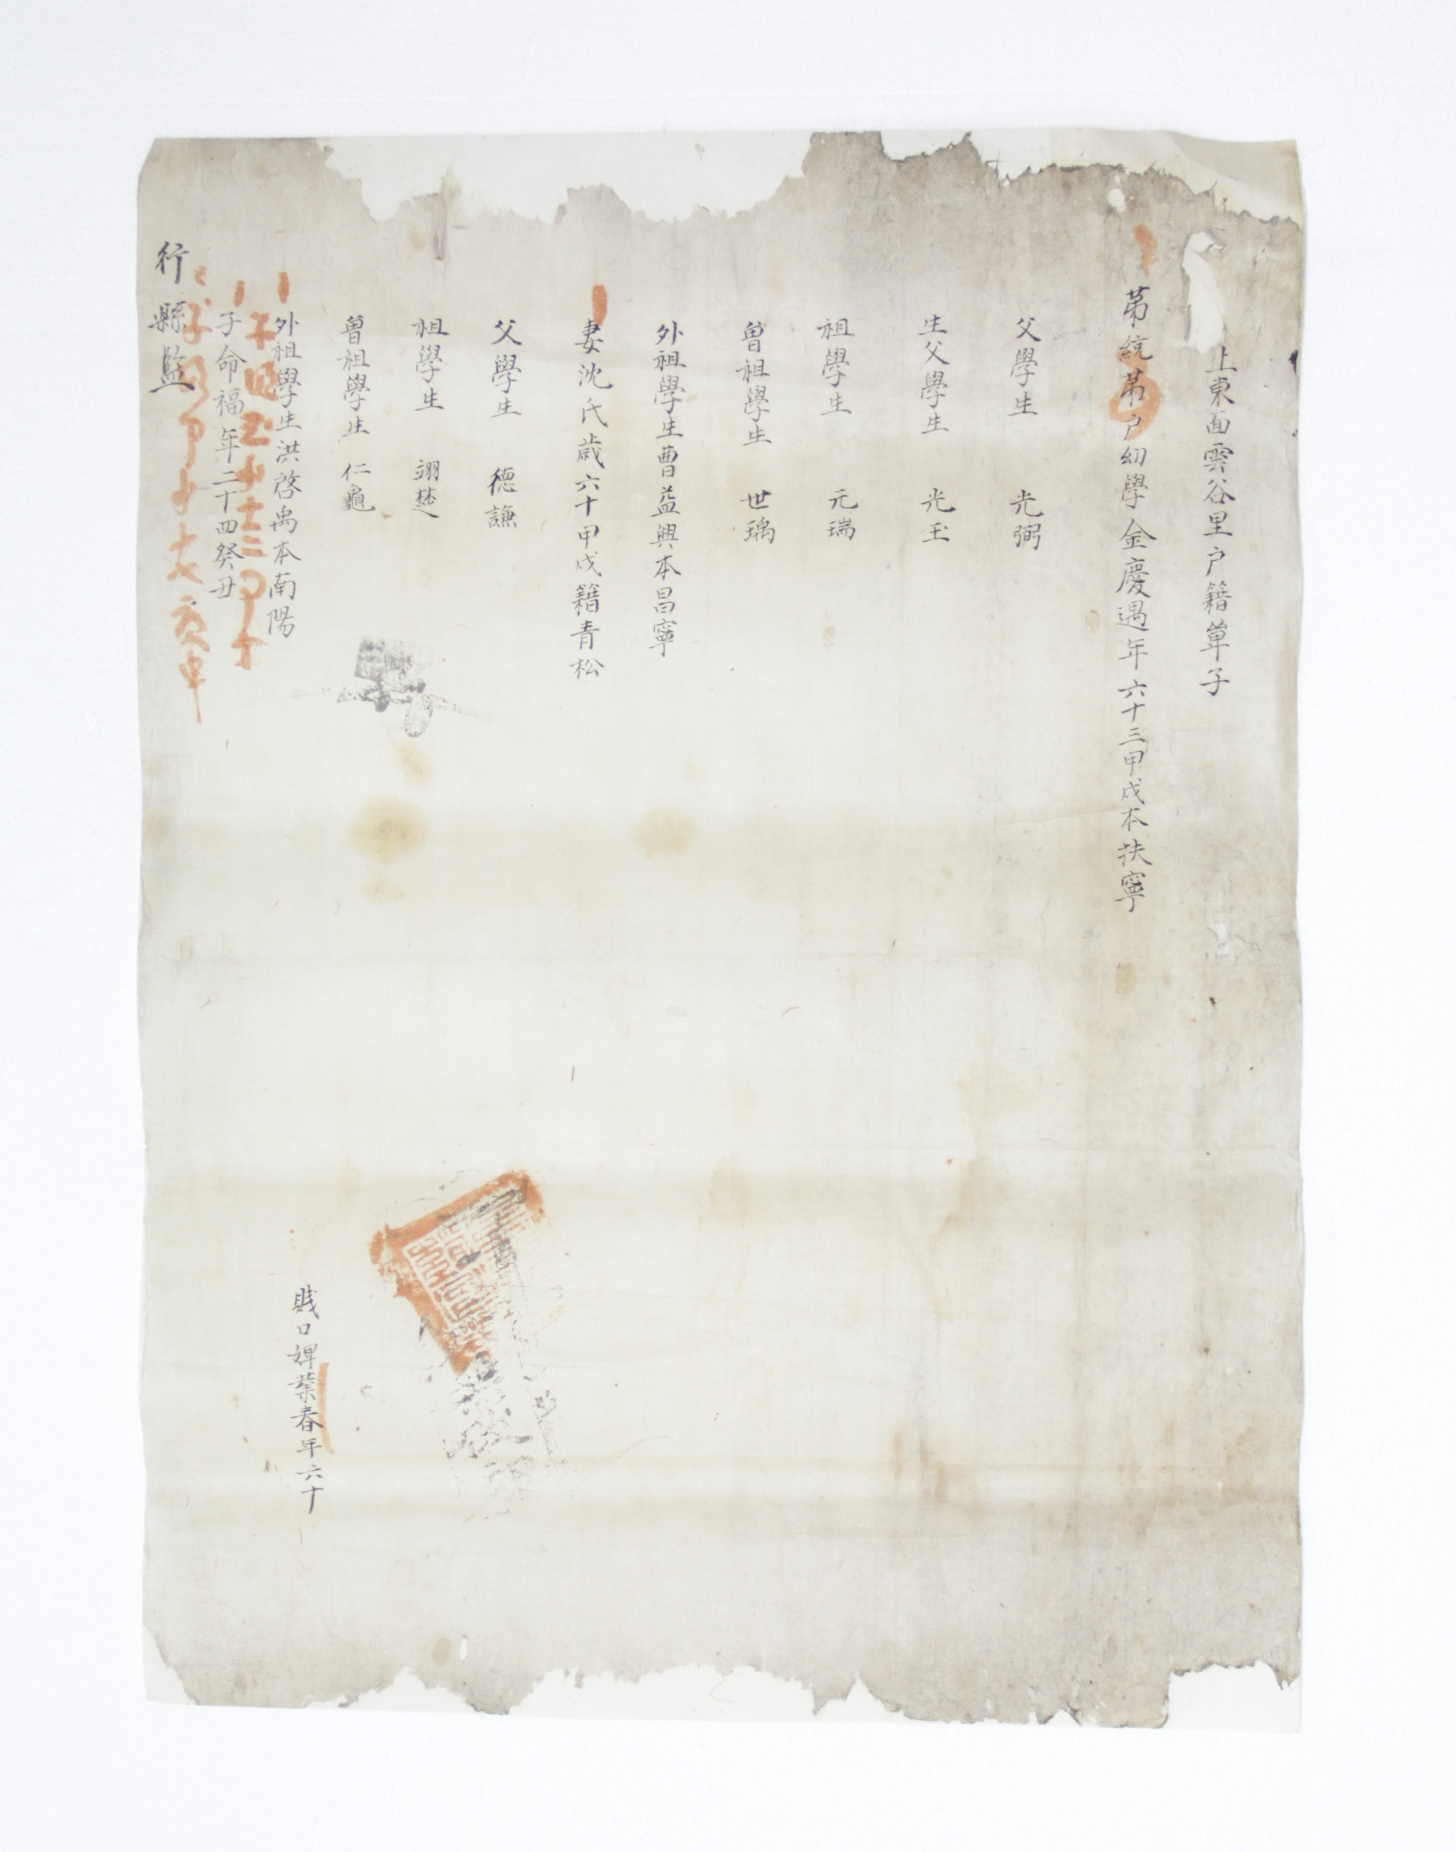 上東面雲谷里户籍單子
苐統苐户幼學金慶遇年六十三甲戌本扶寧
父學生 光弼
生父學生 光玉
祖學生 元瑞
曽祖學生 世瑀
外祖學生曹益興本昌寧
妻沈氏歲六十甲戌籍青松
父學生 德謙
祖學生 翊楚
曽祖學生 仁龜
外祖學生洪啓禹本南陽
賎口婢葉春年六十
子命福年二十四癸丑
行縣監